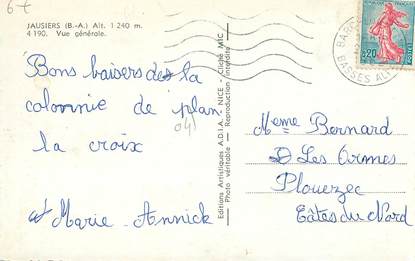 6€
JAUSIERS (B.-A.) Alt. 1 240 m.
4 190. Vue générale.
Bons baisers de la
colonnie de plan
la croix
04
Marie-Annick
Editions Artistiques A.D.I.A. NICE - Cliché MIC
Photo véritable - Reproduction interdite
BASSES ALP
0,20
POSTES
Meme Bernard
Les Ormes
Plouezec
Côtes du Nord